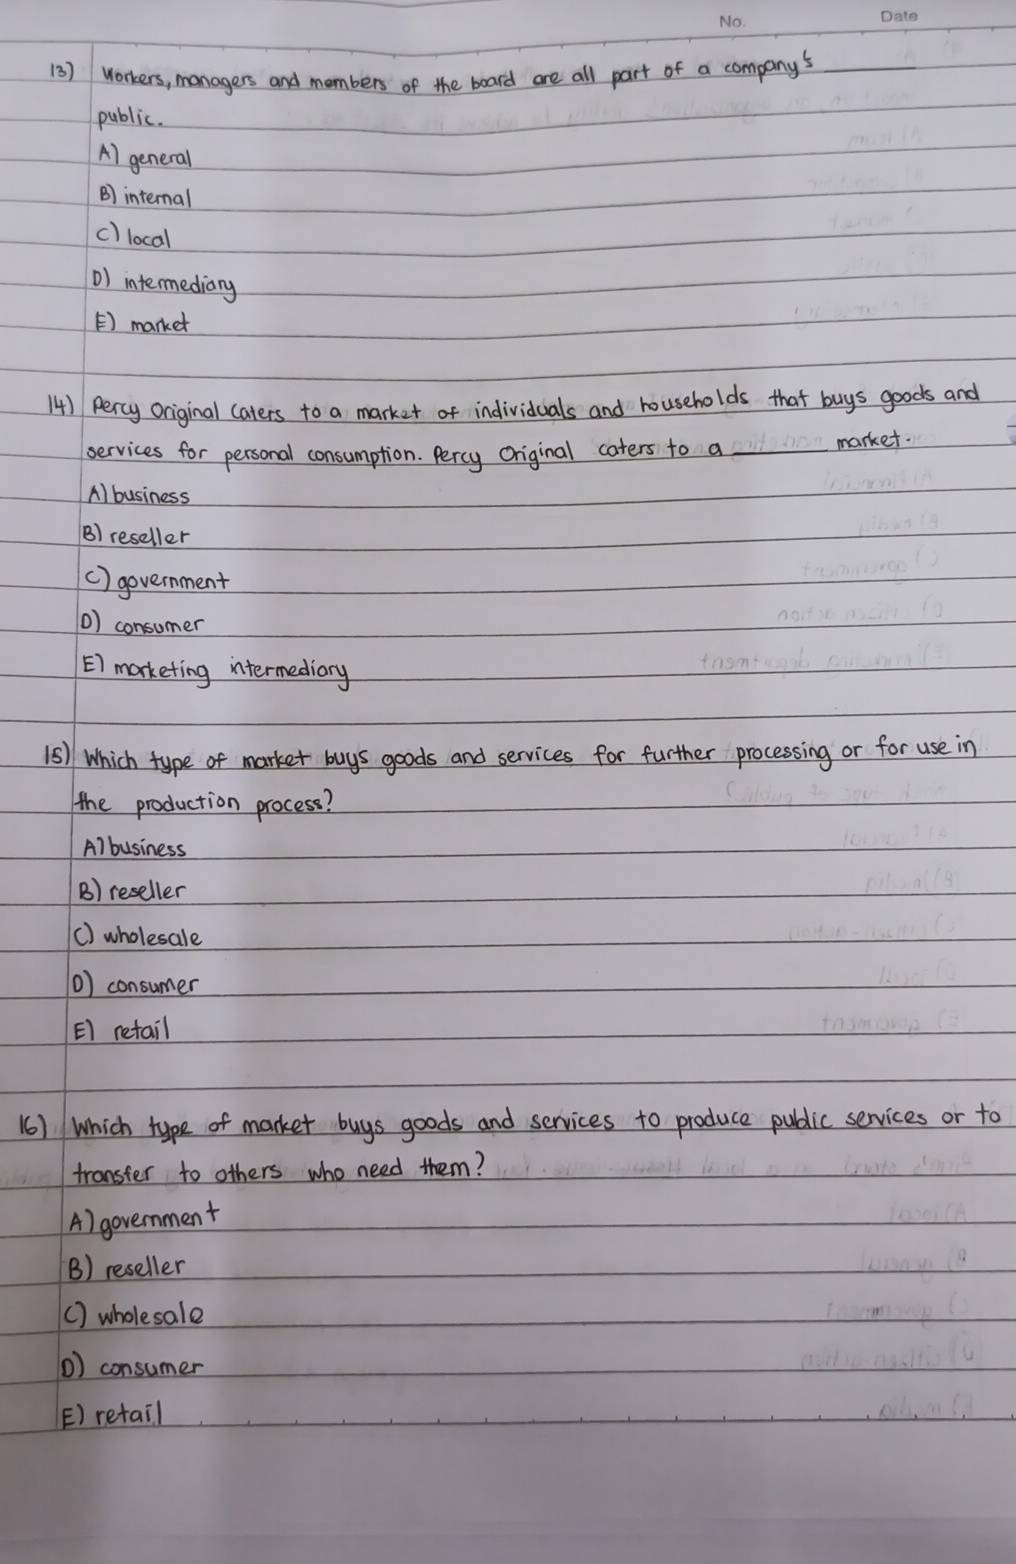 No. Date
13) Workers, managers and members of the board are all part of a company's ______
public.
A) general
B) internal
C) local
D) intermediary
E) market
14) Percy Original caters to a market of individuals and households that buys goods and
services for personal consumption. Percy Original caters to a ______ market.
A) business
B) reseller
C) government
D) consumer
E) marketing intermediary
15) Which type of market buys goods and services for further processing or for use in
the production process?
A) business
B) reseller
C) wholesale
D) consumer
E) retail
16) Which type of market buys goods and services to produce public services or to
transfer to others who need them?
A) government
B) reseller
C) wholesale
D) consumer
E) retail